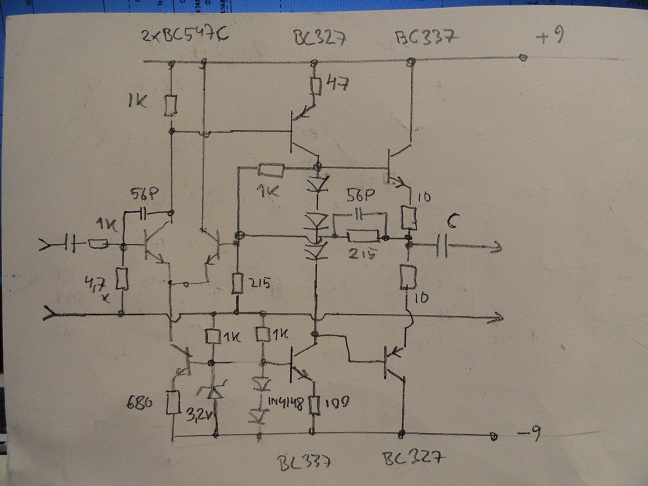 2xBC547C BC327 BC337
+9
47
1K
1K
56P 56P 10
1K C
215
4,7 K 215
10
1K 1K
680 3,2V 1N4148 100
-9
BC337 BC327